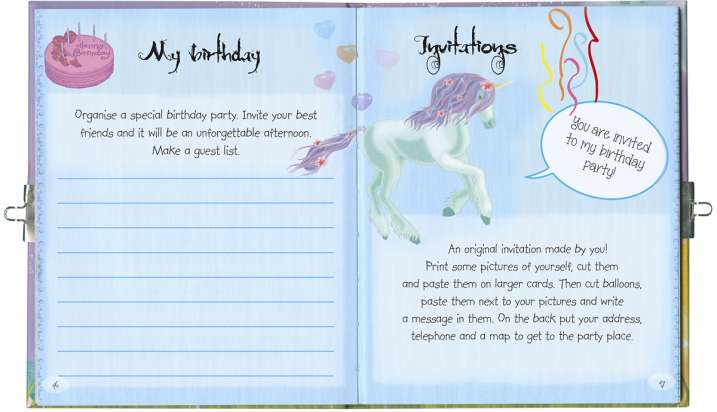 Happy
Birthday
My birthday
Organise a special birthday party. Invite your best
friends and it will be an unforgettable afternoon.
Make a guest list.
6
Invitations
You are invited
to my birthday
party!
An original invitation made by you!
Print some pictures of yourself, cut them
and paste them on larger cards. Then cut balloons,
paste them next to your pictures and write
a message in them. On the back put your address,
telephone and a map to get to the party place.
7